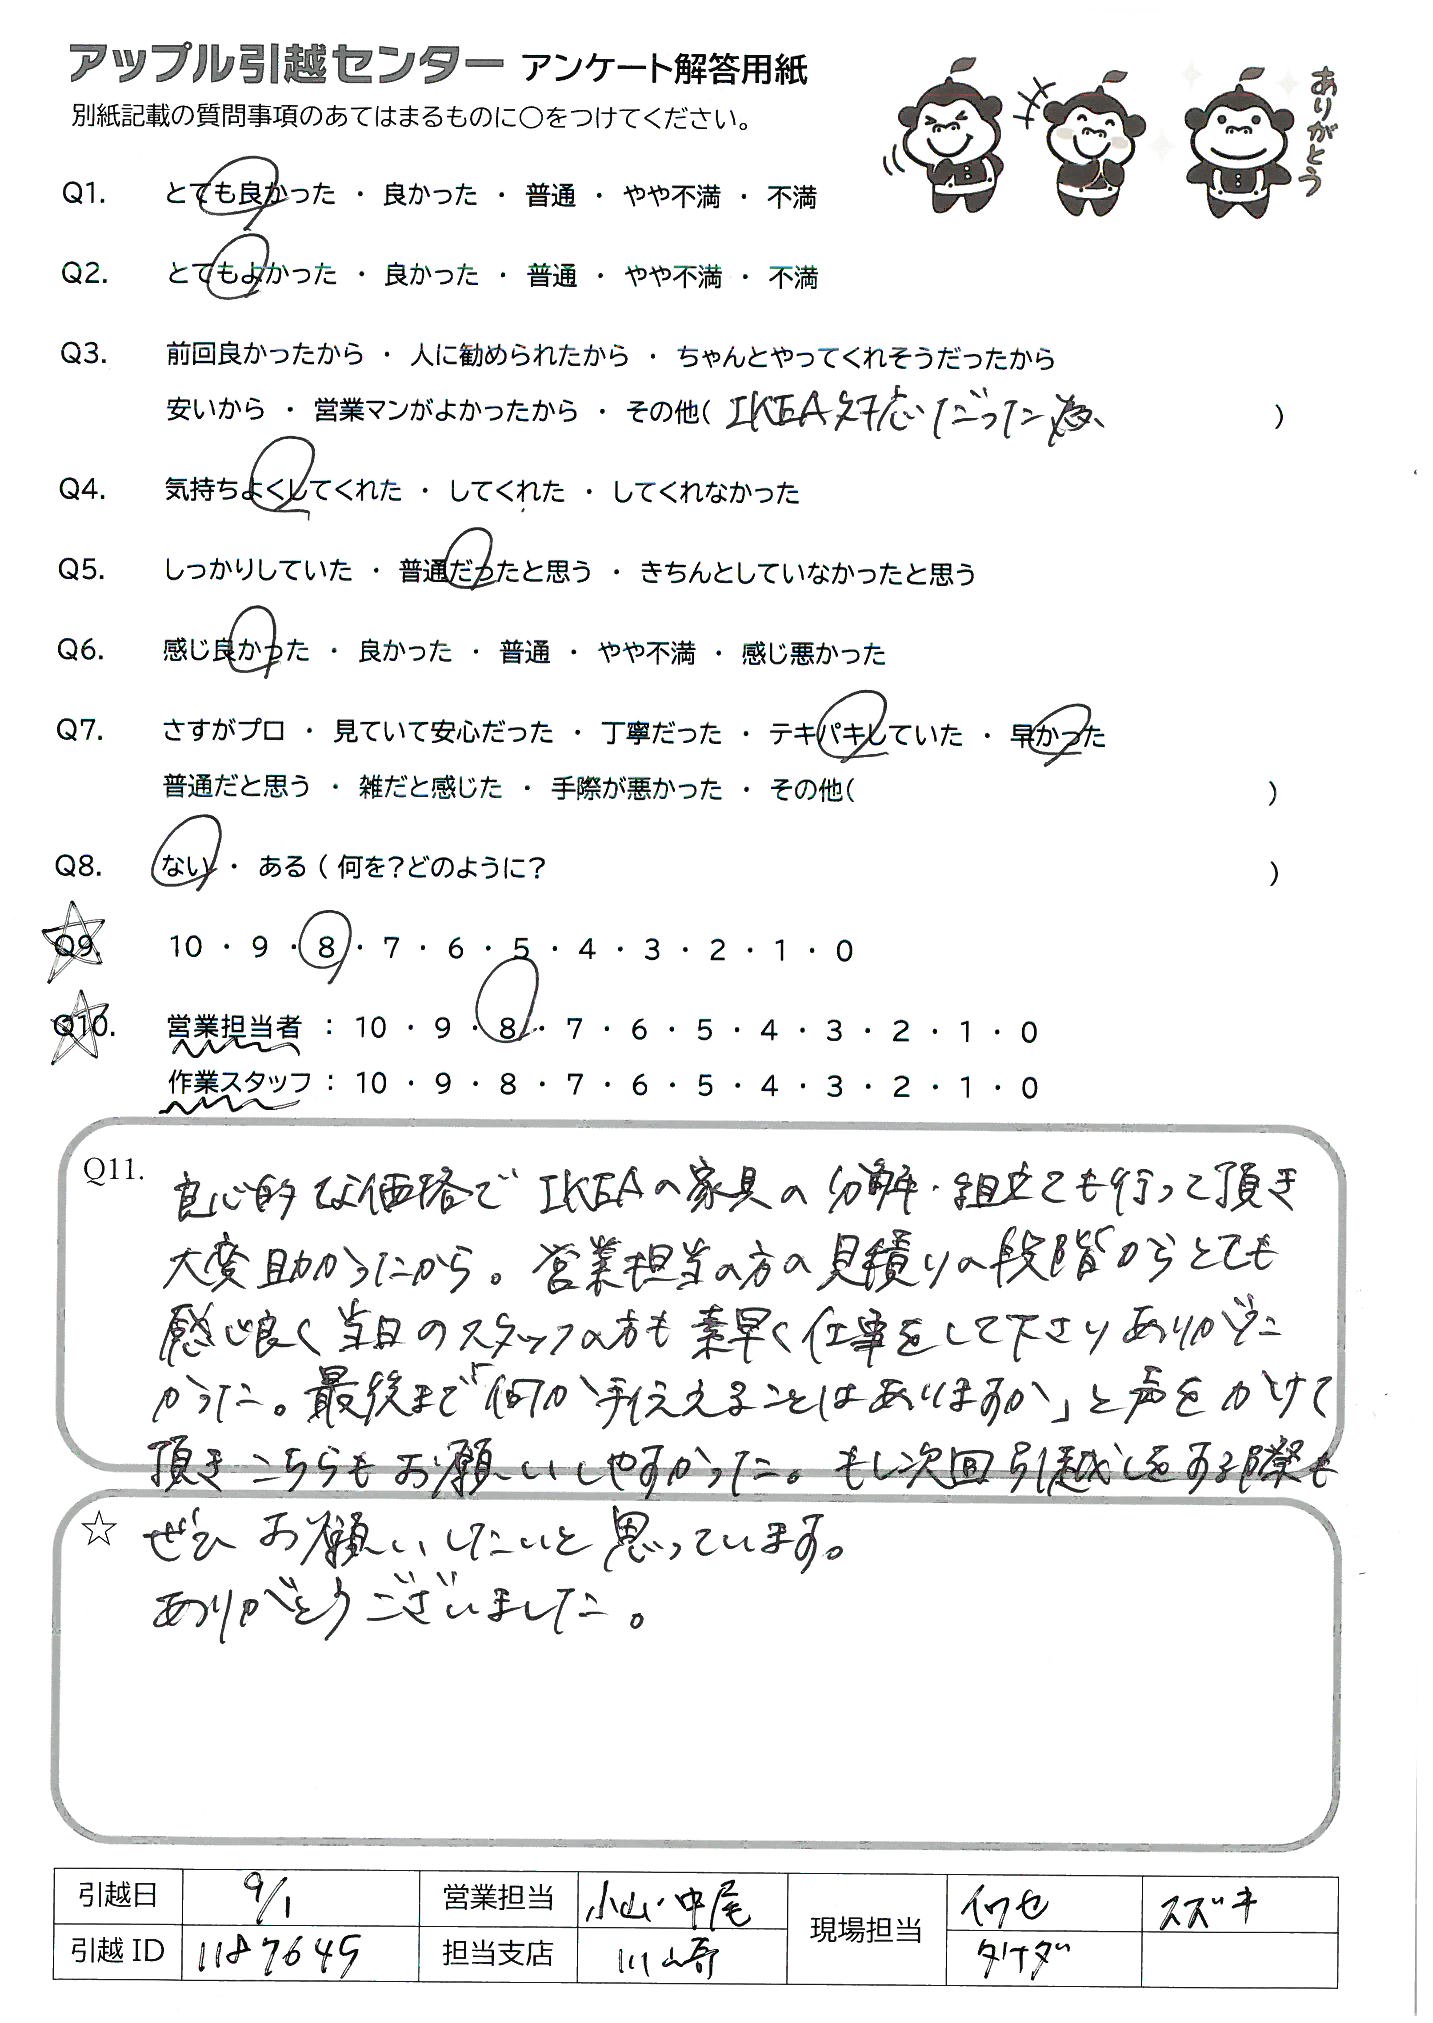 アップル引越センター アンケート解答用紙
別紙記載の質問事項のあてはまるものに○をつけてください。
ありがとう
Q1. とても良かった ・ 良かった ・ 普通 ・ やや不満 ・ 不満
Q2. とてもよかった ・ 良かった ・ 普通 ・ やや不満 ・ 不満
Q3. 前回良かったから ・ 人に勧められたから ・ ちゃんとやってくれそうだったから
安いから ・ 営業マンがよかったから ・ その他( IKEA対応だった為、 )
Q4. 気持ちよくしてくれた ・ してくれた ・ してくれなかった
Q5. しっかりしていた ・ 普通だったと思う ・ きちんとしていなかったと思う
Q6. 感じ良かった ・ 良かった ・ 普通 ・ やや不満 ・ 感じ悪かった
Q7. さすがプロ ・ 見ていて安心だった ・ 丁寧だった ・ テキパキしていた ・ 早かった
普通だと思う ・ 雑だと感じた ・ 手際が悪かった ・ その他( )
Q8. ない ・ ある ( 何を?どのように? )
Q9. 10 ・ 9 ・ 8 ・ 7 ・ 6 ・ 5 ・ 4 ・ 3 ・ 2 ・ 1 ・ 0
Q10. 営業担当者 : 10 ・ 9 ・ 8 ・ 7 ・ 6 ・ 5 ・ 4 ・ 3 ・ 2 ・ 1 ・ 0
作業スタッフ : 10 ・ 9 ・ 8 ・ 7 ・ 6 ・ 5 ・ 4 ・ 3 ・ 2 ・ 1 ・ 0
Q11. 良心的な価格でIKEAの家具の分解・組立ても行って頂き
大変助かったから。営業担当の方の見積りの段階からとても
感じ良く当日のスタッフの方も素早く仕事をして下さりありがた
かった。最後まで「何か手伝えることはありますか」と声をかけて
頂きこちらもお願いしやすかった。もし次回引越しをする際も
☆ ぜひお願いしたいと思っています。
ありがとうございました。
引越日 9/1 営業担当 小山・中尾 現場担当 イワセ スズキ
引越ID 1187645 担当支店 川崎 タケダ